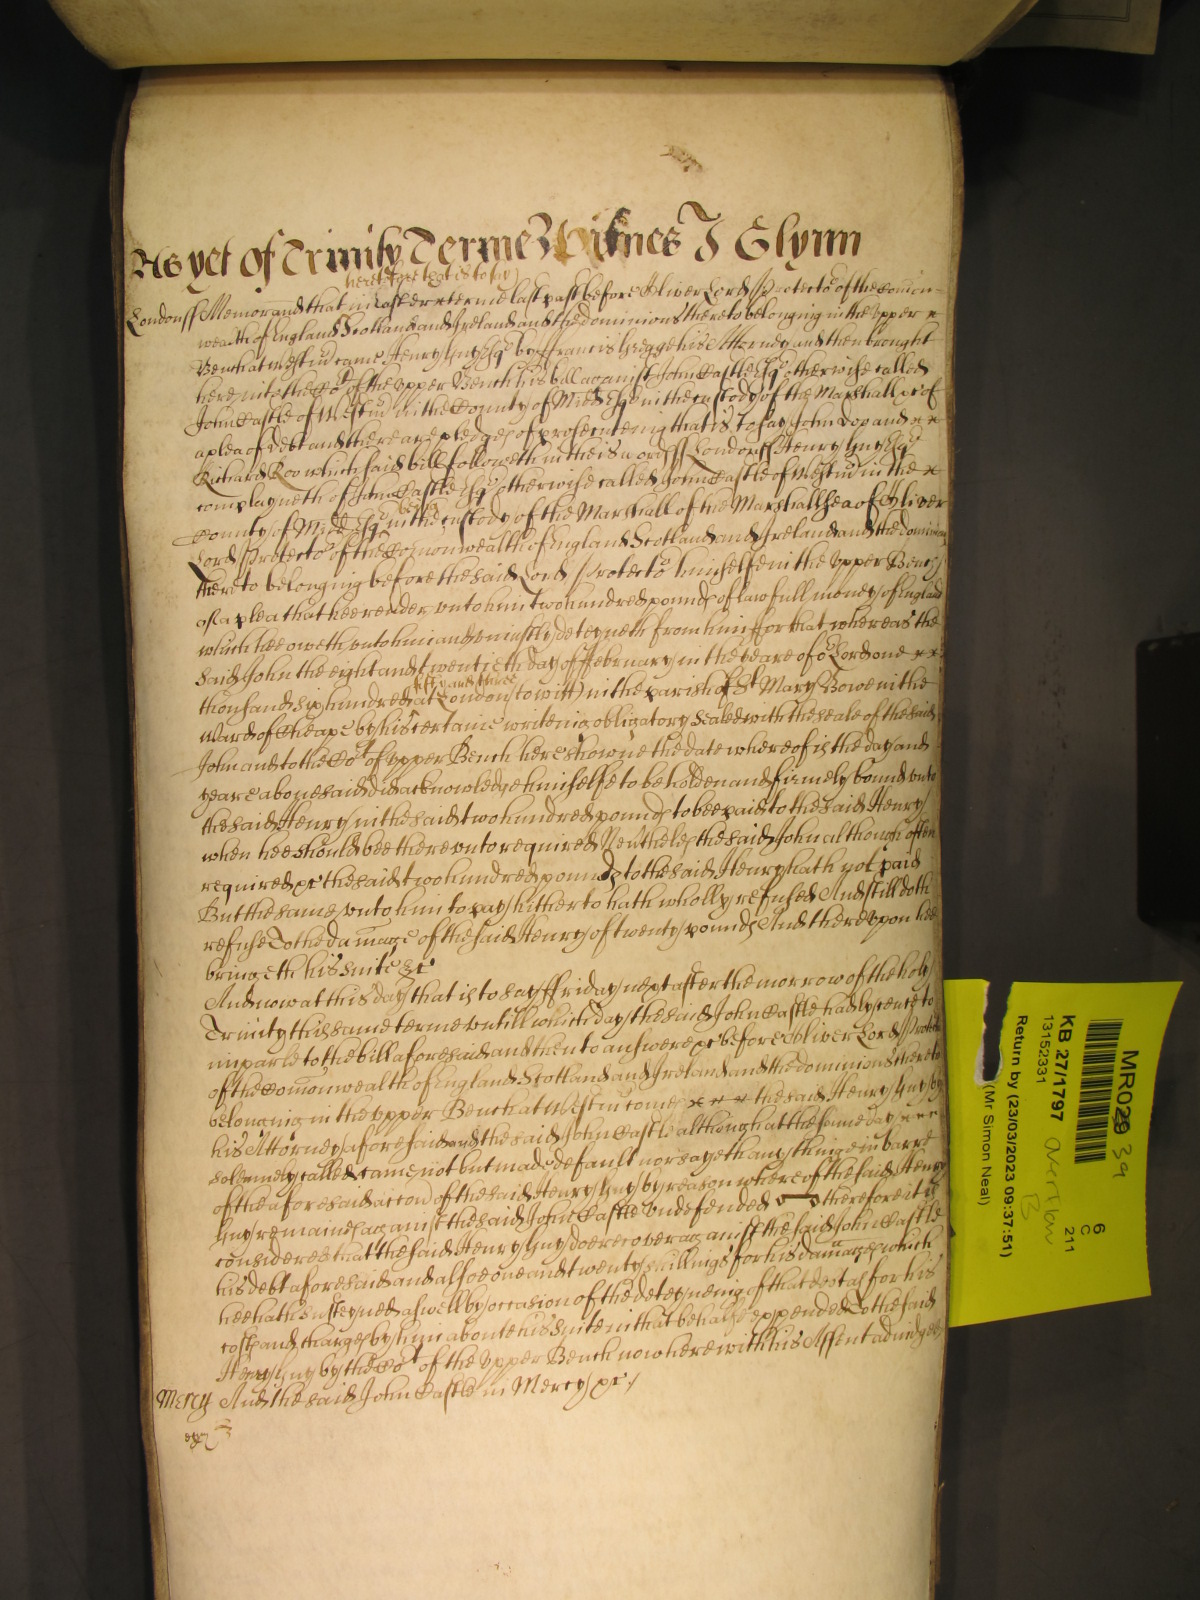 As yet of Trinity Terme Witnes J Glynn
heretofore that is to say
Londonss Memorand that in Easter terme last past before Oliver Lord Protecto of the Comon
wealth of England Scotland and Ireland and the dominions thereto belonging in the upper x
Bench at Westm came Henry Guy Esqe by ffrancis Gregge his Attorney and then brought
here into the Cot of the upper Bench his bill against John Castle Esqe otherwise called
John Castle of Westm in the County of Midd Esqe in the custody of the Marshall &c of
a plea of debt and there are pledges of prosecuteing that is to say John Doo and x x
Richard Roo which said bill followeth in theis words ss Londonss Henry Guy Esqe
complayneth of John Castle Esqe otherwise called John Castle of Westm in the x
being
County of Midd Esqe in the custody of the Marshall of the Marshallsea of Oliver
Lord Protecto of the Comonwealth of England Scotland and Ireland and the dominions
thereto belonging before the said Lord Protecto himselfe in the upper Bench
of a plea that hee render unto him two hundred pounds of lawfull money of England
which hee oweth unto him and uniustly deteyneth from him ffor that whereas the
said John the eight and twentieth day of ffebruary in the yeare of or Lord one x x
fifty and three
thousand six hundred at London (to witt) in the parish of St Mary Bowe in the
Ward of Cheape by his certaine writeing obligatory sealed with the seale of the said
John and to the Cot of upper Bench here showne the date whereof is the day and
yeare abovesaid did acknowledge himselfe to be holden and firmely bound unto
the said Henry in the said two hundred pounds to bee paid to the said Henry
when hee should bee thereunto required Nevtheles the said John although often
required &c the said two hundred pounds to the said Henry hath not paid
But the same unto him to pay hitherto hath wholly refused And still doth
refuse To the damage of the said Henry of twenty pounds And thereupon hee
bringeth his suite &c
And now at this day that is to say ffriday next after the morrow of the holy
Trinity this same terme untill which day the said John Castle had lycence to
imparle to the bill aforesaid and then to answere &c before Oliver Lord Protecto
of the Comonwealth of England Scotland and Ireland and the dominions thereto
belonging in the upper Bench at Westm comes x x x the said Henry Guy by
his Attorney aforesaid and the said John Castle although at the same day x x x
solemnely called came not but made default nor sayeth any thinge in barre
of the aforesaid accon of the said Henry Guy by reason whereof the said Henry
Guy remaines against the said John Castle undefended therefore it is
considered that the said Henry Guy doe recover against the said John Castle
his debt aforesaid and alsoe one and twenty shillings for his damages which
hee hath susteyned aswell by occasion of the deteyneing of that debt as for his
costs and charges by him about his suite in that behalfe expended To the said
Henry Guy by the Cot of the upper Bench now here with his Assent adiudged
Mercy And the said John Castle in Mercy &c
MR029 39
KB 27/1797 Overflow B
13152331
6
C
211
Return by (23/03/2023 09:37:51)
(Mr Simon Neal)